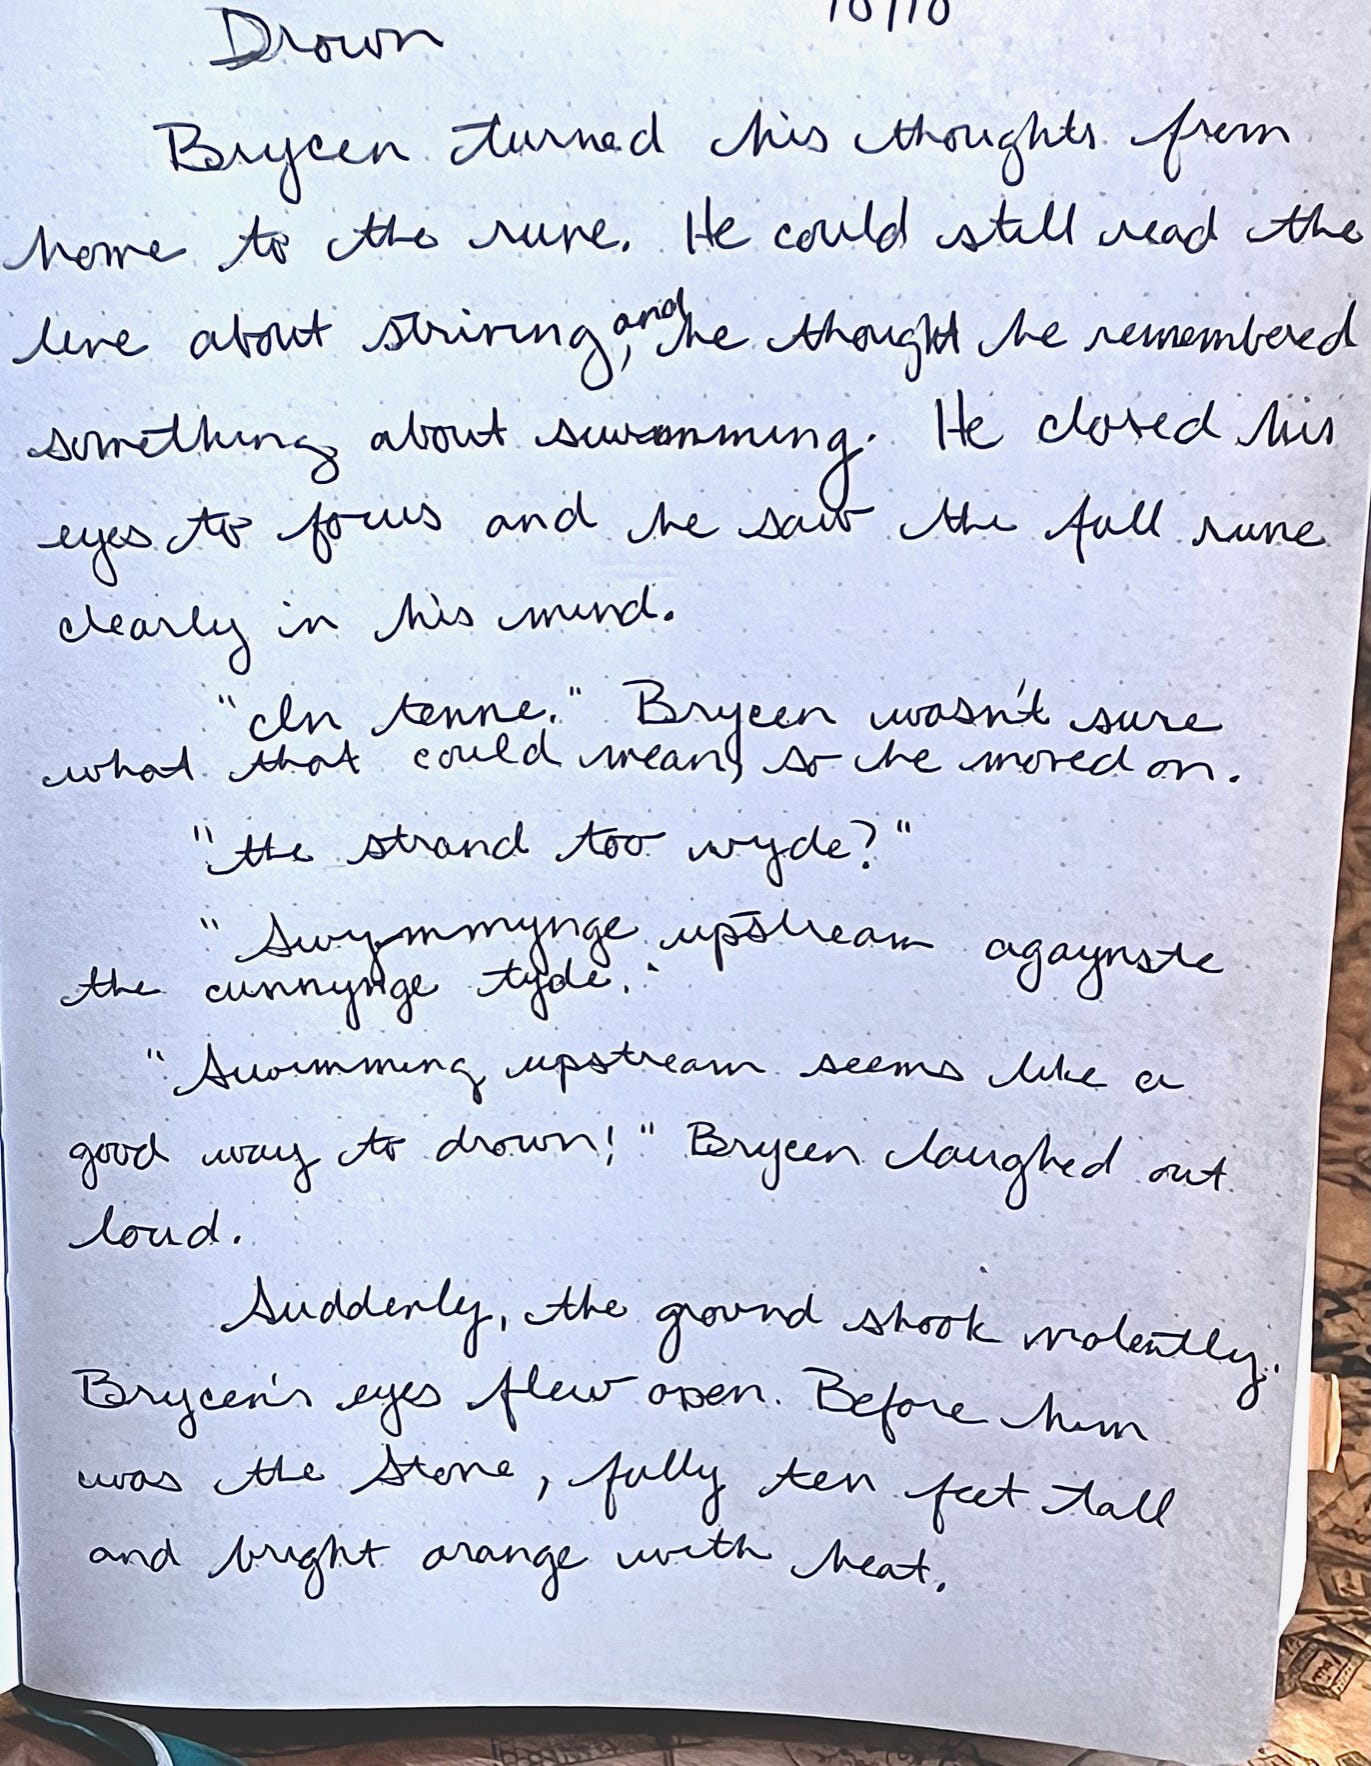 10/10
Drown
Brycen turned his thoughts from
home to the rune. He could still read the
line about striving, and he thought he remembered
something about swimming. He closed his
eyes to focus and he saw the full rune
clearly in his mind.
"In tenne." Brycen wasn't sure
what that could mean, so he moved on.
"the strand too wyde?"
"Swymmynge upstream agaynste
the cunnynge tyde."
"Swimming upstream seems like a
good way to drown!" Brycen laughed out
loud.
Suddenly, the ground shook violently.
Brycen's eyes flew open. Before him
was the Stone, fully ten feet tall
and bright orange with heat.